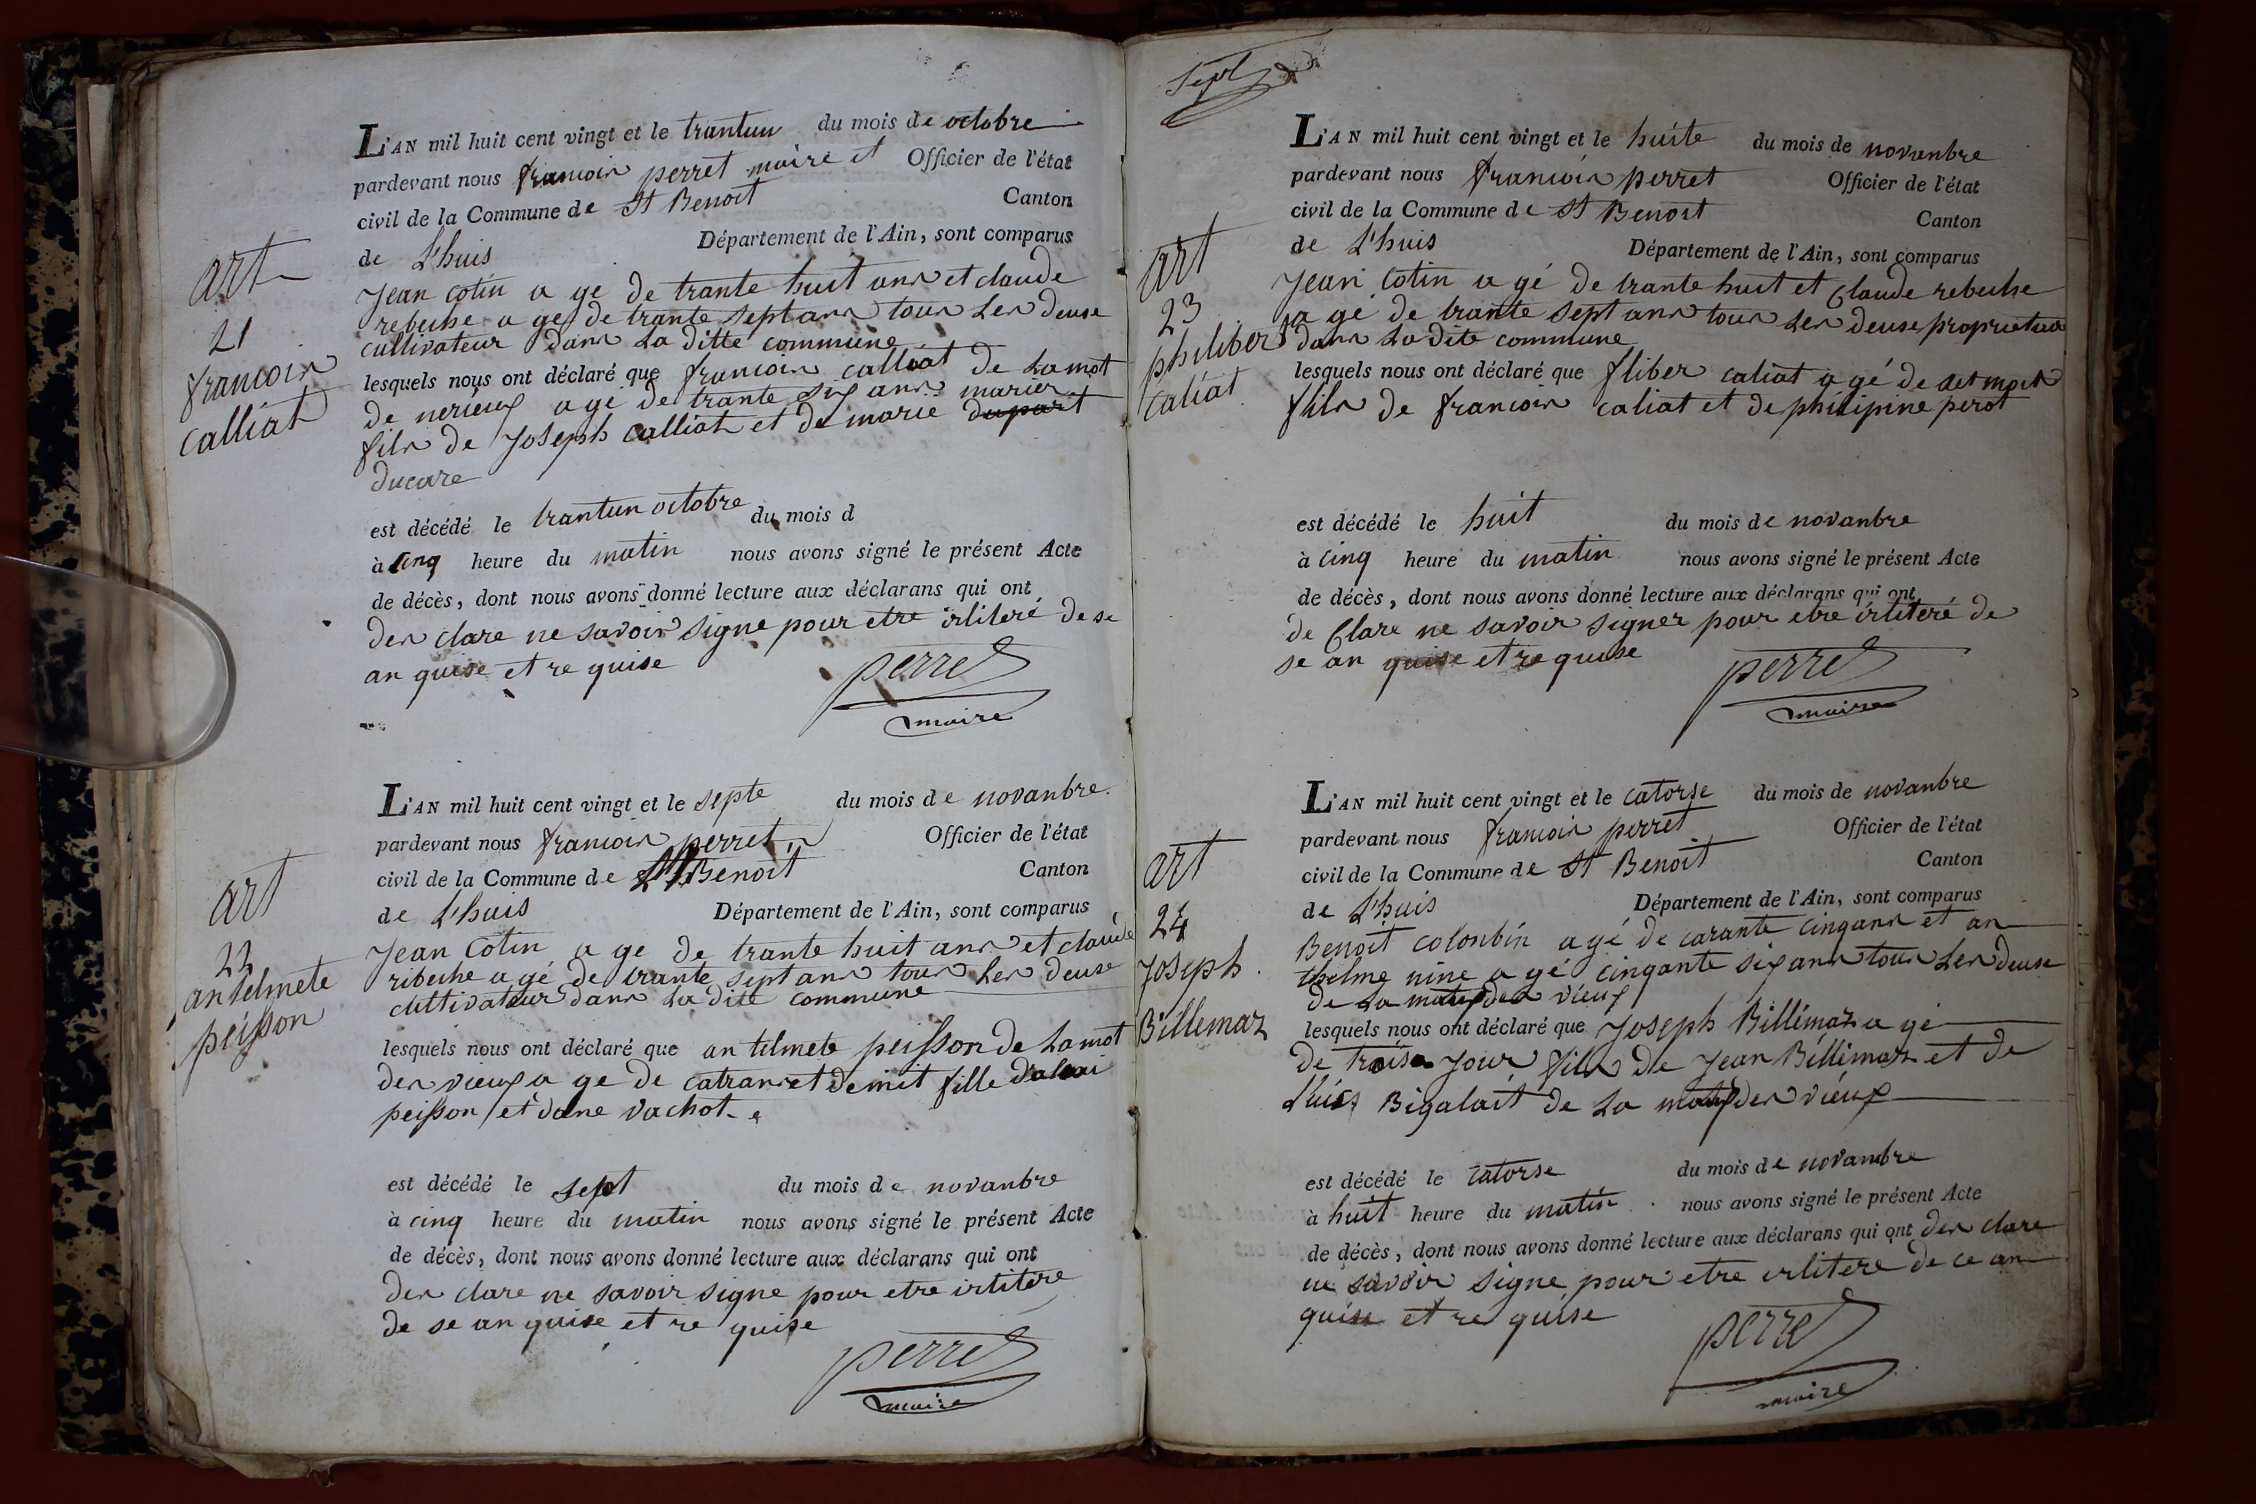 L'AN mil huit cent vingt et le trantun du mois de octobre
pardevant nous francoir perret maire et Officier de l'état
civil de la Commune de St Benoit Canton
de L'huis Département de l'Ain, sont comparus
art
21
francoir
calliat
Jean cotin a gé de trante huit anr et claude
rebeche a gé de trante sept anr tour Ler deuse
cultivateur danr La ditte commune
lesquels nous ont déclaré que francoir calliat de Lamot
de nerieux a gé de trante six anr marier
filr de Joseph Calliat et de marie dupait
ducare
est décédé le trantun octobre du mois d
à cinq heure du matin nous avons signé le présent Acte
de décès, dont nous avons donné lecture aux déclarans qui ont
der clare ne savoir signe pour etre irliteré de se
an quise et re quise
perret
maire
L'AN mil huit cent vingt et le septe du mois de novanbre
pardevant nous francoir perret Officier de l'état
civil de la Commune de St Benoit Canton
de L'huis Département de l'Ain, sont comparus
art
22
antelmete
peisson
Jean Cotin a ge de trante huit anr et claude
ribeche a gé de trante sept anr tour Ler deuse
cultivateur danr La dite commune
lesquels nous ont déclaré que an telmete peisson de Lamot
der vieux a ge de catranr et demit fille d'alexi
peisson et dane vachot
est décédé le sept du mois de novanbre
à cinq heure du matin nous avons signé le présent Acte
de décès, dont nous avons donné lecture aux déclarans qui ont
der clare ne savoir signe pour etre irlitere
de se an quise et re quise
perret
maire
Sept
L'AN mil huit cent vingt et le huite du mois de novenbre
pardevant nous francoir perret Officier de l'état
civil de la Commune de St Benoit Canton
de L'huis Département de l'Ain, sont comparus
art
23
philibert
caliat
Jean Cotin a gé de trante huit et Claude rebeche
a gé de trante sept anr tour Ler deuse
danr La dite commune
lesquels nous ont déclaré que fliber caliat a gé de set moit
filr de francoir caliat et de philipine perot
est décédé le huit du mois de novanbre
à cinq heure du matin nous avons signé le présent Acte
de décès, dont nous avons donné lecture aux déclarans qui ont
de Clare ne savoir signer pour etre irliteré de
se an quise et re quise
perret
maire
L'AN mil huit cent vingt et le catorse du mois de novanbre
pardevant nous francoir perret Officier de l'état
civil de la Commune de St Benoit Canton
de L'huis Département de l'Ain, sont comparus
art
24
Joseph
Billemaz
Benoit colonbin a gé de carante cinganr et an
thelme nine a gé cinqante six anr tour Ler deuse
de La der vieux
lesquels nous ont déclaré que Joseph Billémaz a gé
de trois Jour filr de Jean Béllimaz et de
Bigalait de La der vieux
est décédé le catorse du mois de novanbre
à huit heure du matin nous avons signé le présent Acte
de décès, dont nous avons donné lecture aux déclarans qui ont der clare
ne savoir signe pour etre irlitere de ce an
quise et re quise
perret
maire